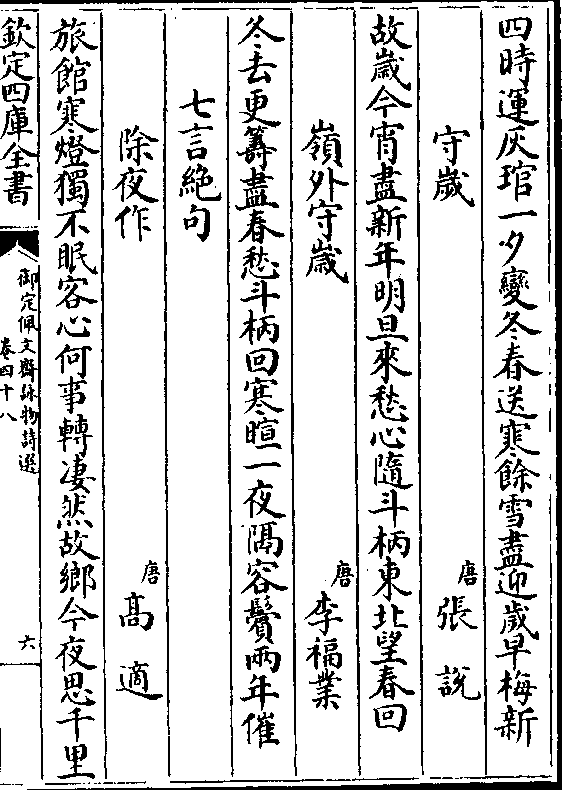 四時運灰琯一夕變冬春送寒餘雪盡迎歲早梅新
守歲
唐
張說
故歲今宵盡新年明旦來愁心隨斗柄東北望春回
嶺外守歲
唐
李福業
冬去更籌盡春愁斗柄回寒暄一夜隔容鬢兩年催
七言絶句
除夜作
唐
高適
旅館寒燈獨不眠客心何事轉凄然故鄉今夜思千里
欽定四庫全書
御定佩文齋詠物詩選
卷四十八
六